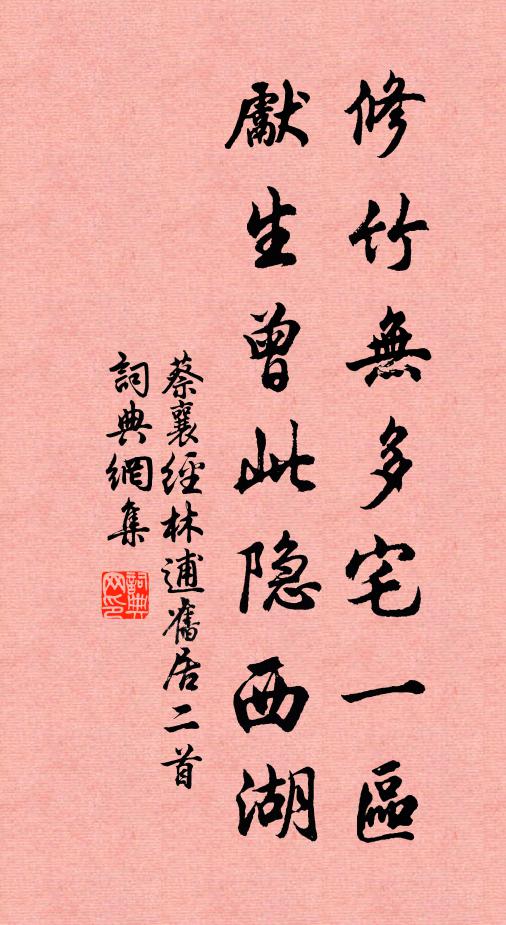 修竹無多宅一區
獻生曾此隐西湖
蔡襄經林逋舊居二首
詞典網集
詞典網印